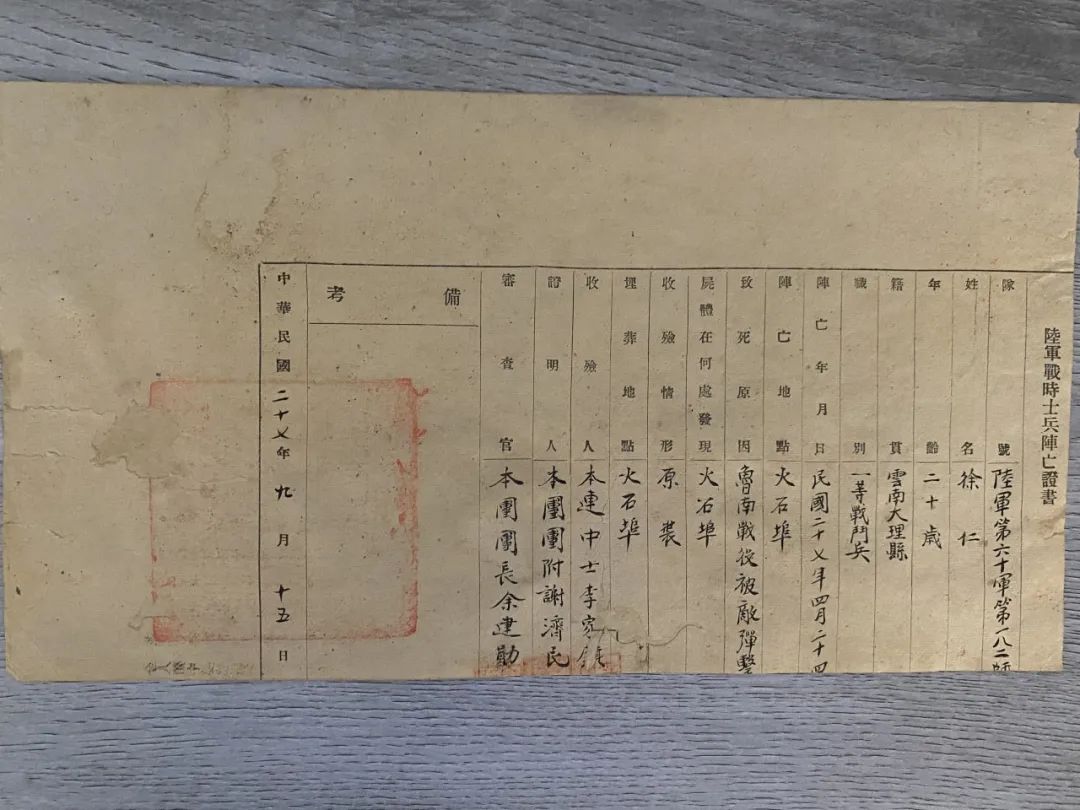 陸軍戰時士兵陣亡證書
隊號 陸軍第六十軍第一八二師
姓名 徐仁
年齡 二十歲
籍貫 雲南大理縣
職別 一等戰鬥兵
陣亡年月日 民國二十七年四月二十四
陣亡地點 火石埠
致死原因 魯南戰役被敵彈擊
屍體在何處發現 火石埠
收殮情形 原裝
埋葬地點 火石埠
收殮人 本連中士李家
證明人 本團團附謝濟民
審查官 本團團長余建勛
備考
中華民國二十七年九月十五日